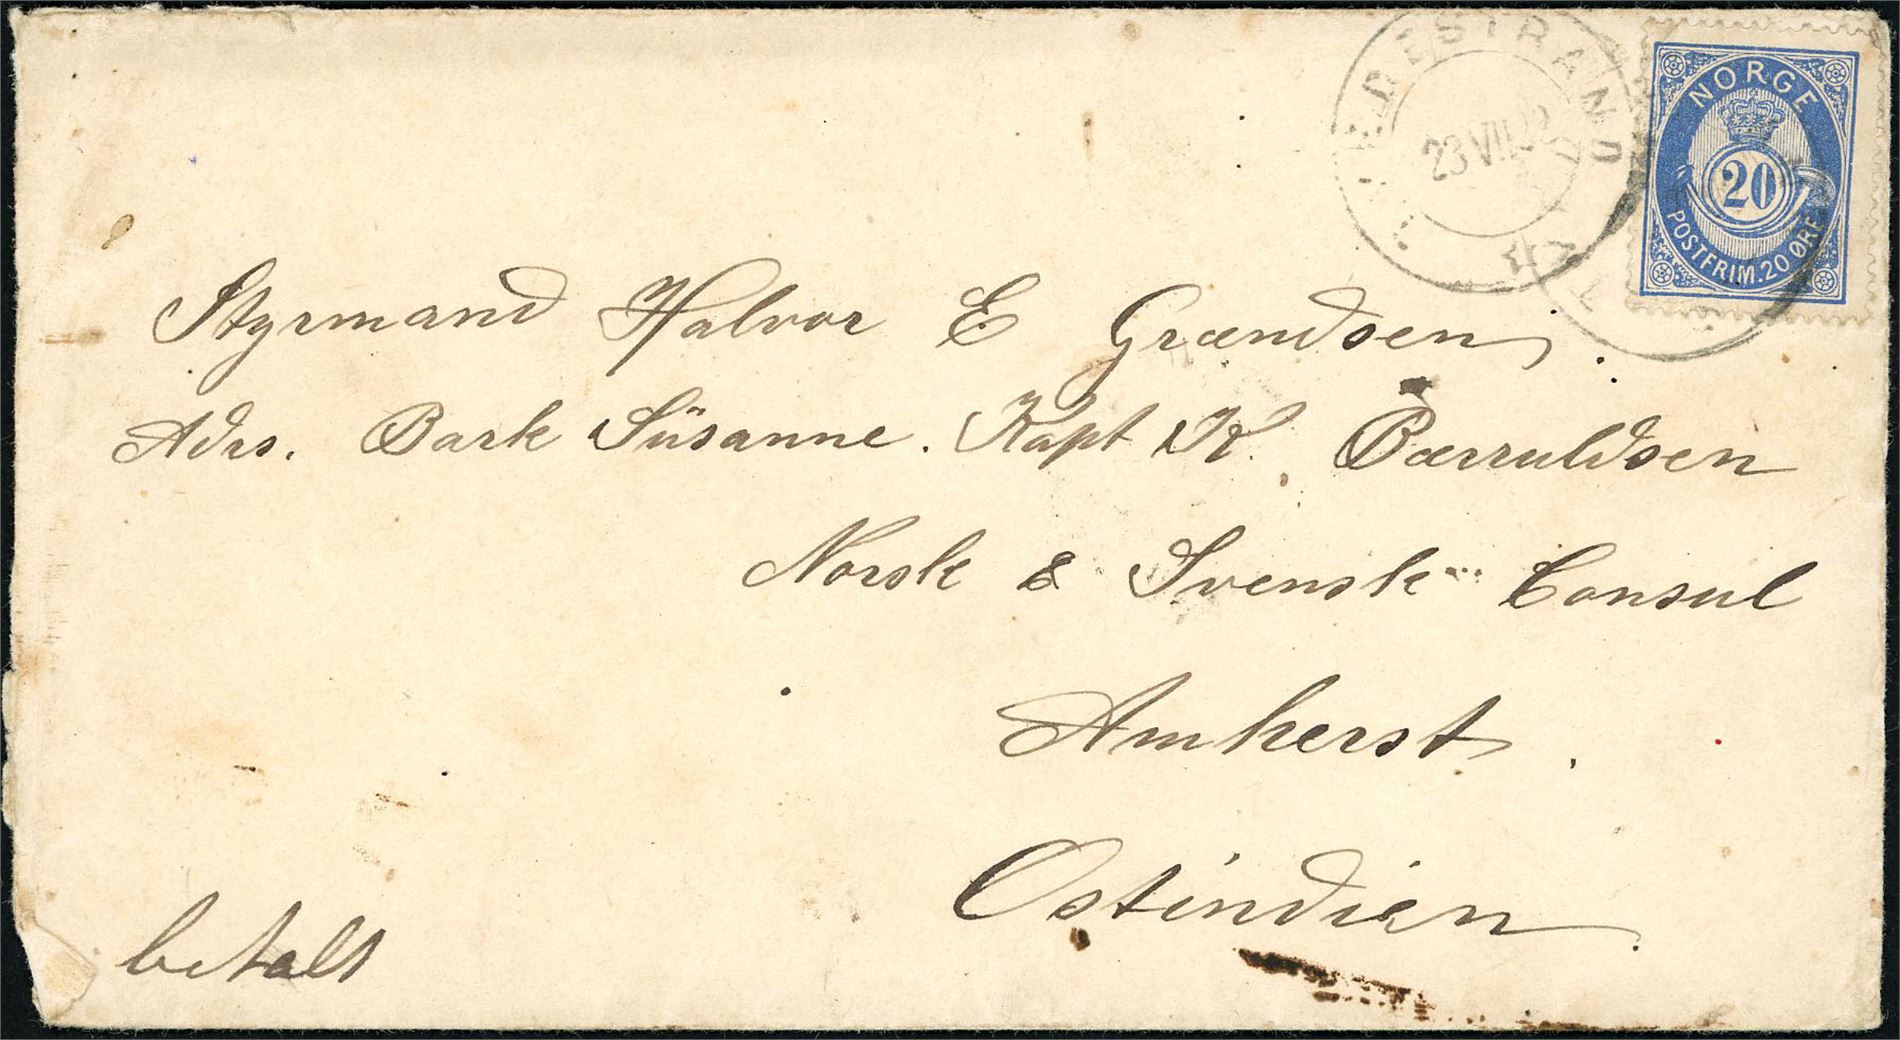 VEDESTRAND
23 VII 92
NORGE
20
POSTFRIM. 20 ØRE
Styrmand Halvor E Grændsen.
Adrs. Bark Süsanne. Kapt K. Bærruldsen
Norsk & Svensk Consul
Amherst.
Ostindien
betalt